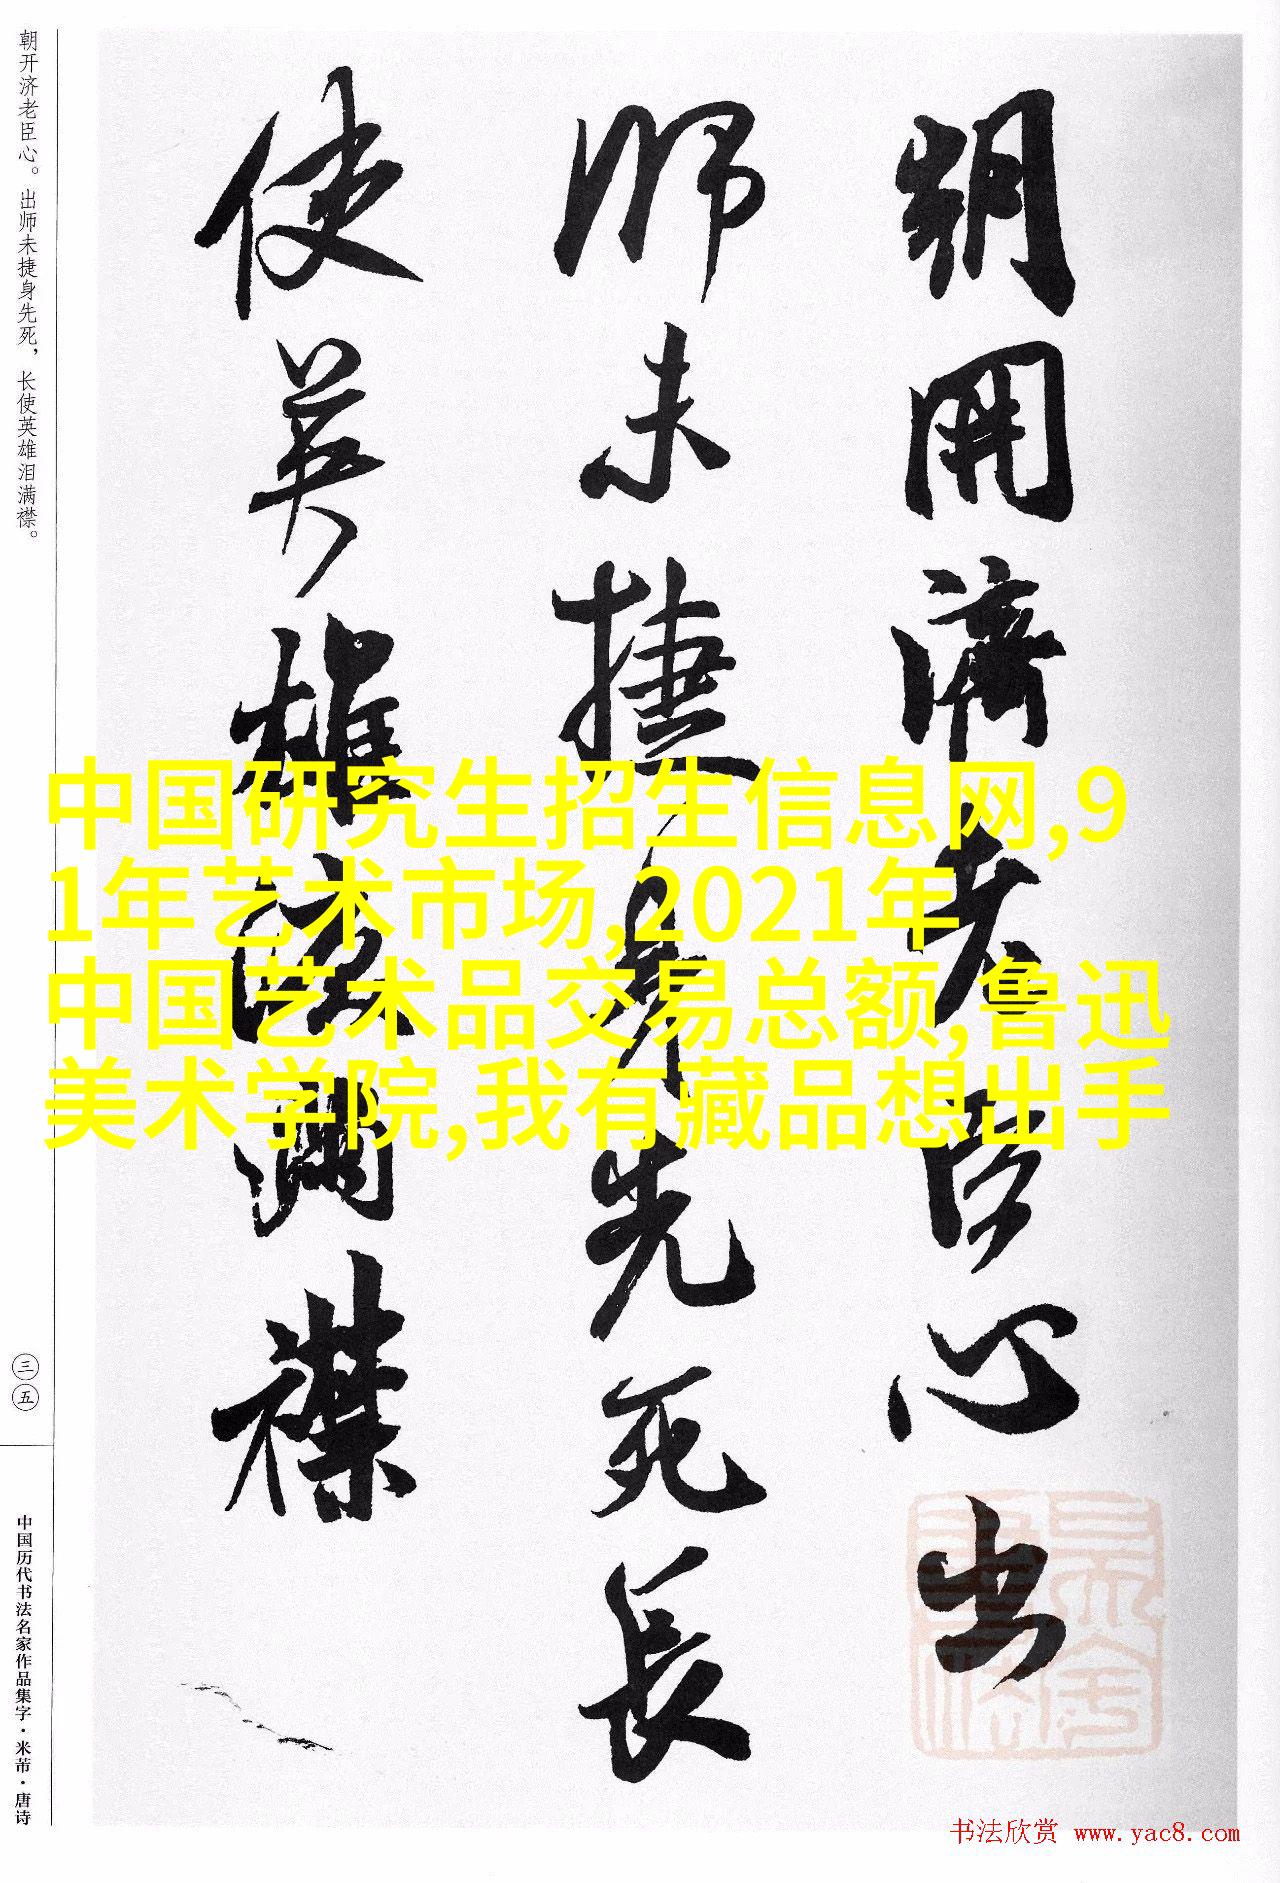 朝开济老臣心。出师未捷身先死，长使英雄泪满襟。
三五
中国历代书法名家作品集字·米芾·唐诗
朝開濟老臣心出
師未捷身先死長
使英雄淚滿襟
中国研究生招生信息网,9
1年艺术市场,2021年
中国艺术品交易总额,鲁迅
美术学院,我有藏品想出手
书法欣赏 www.yac8.com